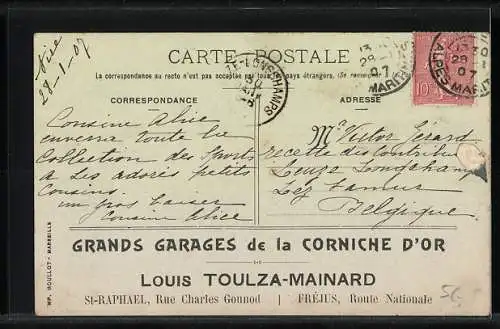 Nice
28-1-07
CARTE POSTALE
La correspondance au recto n'est pas acceptée par tous les pays étrangers. (Se renseigner
CORRESPONDANCE
ADRESSE
Cousine Alice
enverra toute la
Collection des Sports
à ses adorés petits
Cousins.
un gros baiser
Cousine Alice
Mr Victor Gérard
recette des contrib
Leuze Longchamps
Lez Namur
Belgique
LONGCHAMPS
13
28
07
MARITIMES
10
ALPES MARIT
28
07
GRANDS GARAGES de la CORNICHE D'OR
LOUIS TOULZA-MAINARD
St-RAPHAEL, Rue Charles Gounod | FRÉJUS, Route Nationale
IMP. MOULLOT - MARSEILLE